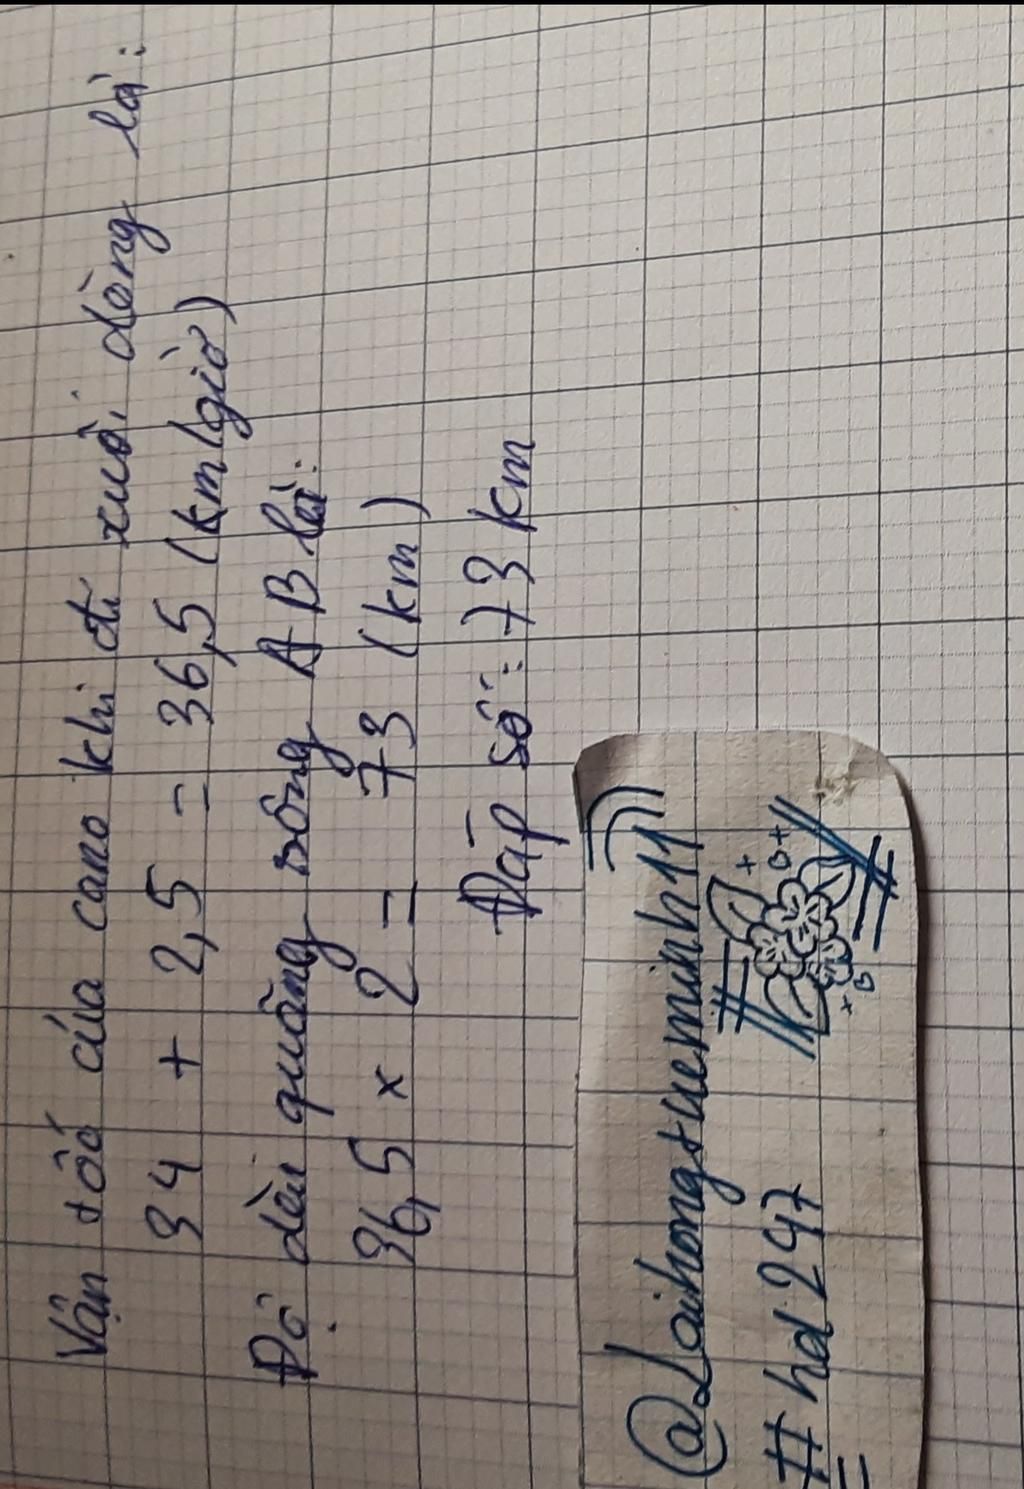 Vận tốc của cano khi đi xuôi dòng là:
34 + 2,5 = 36,5 (km/giờ)
Độ dài quãng sông AB là:
36,5 x 2 = 73 (km)
Đáp số: 73 km
@Laihongtueminh11
#hd247